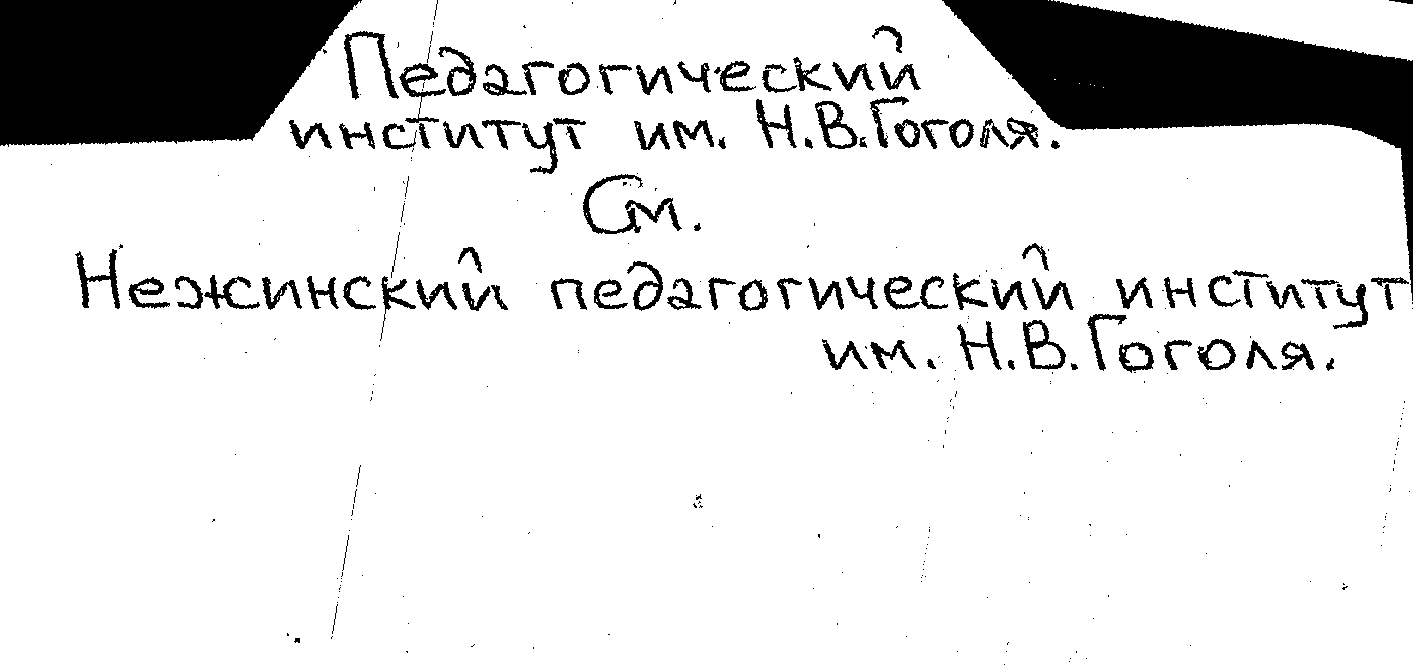 Педагогический
институт им. Н.В.Гоголя.
См.
Нежинский педагогический институт
им. Н.В.Гоголя.